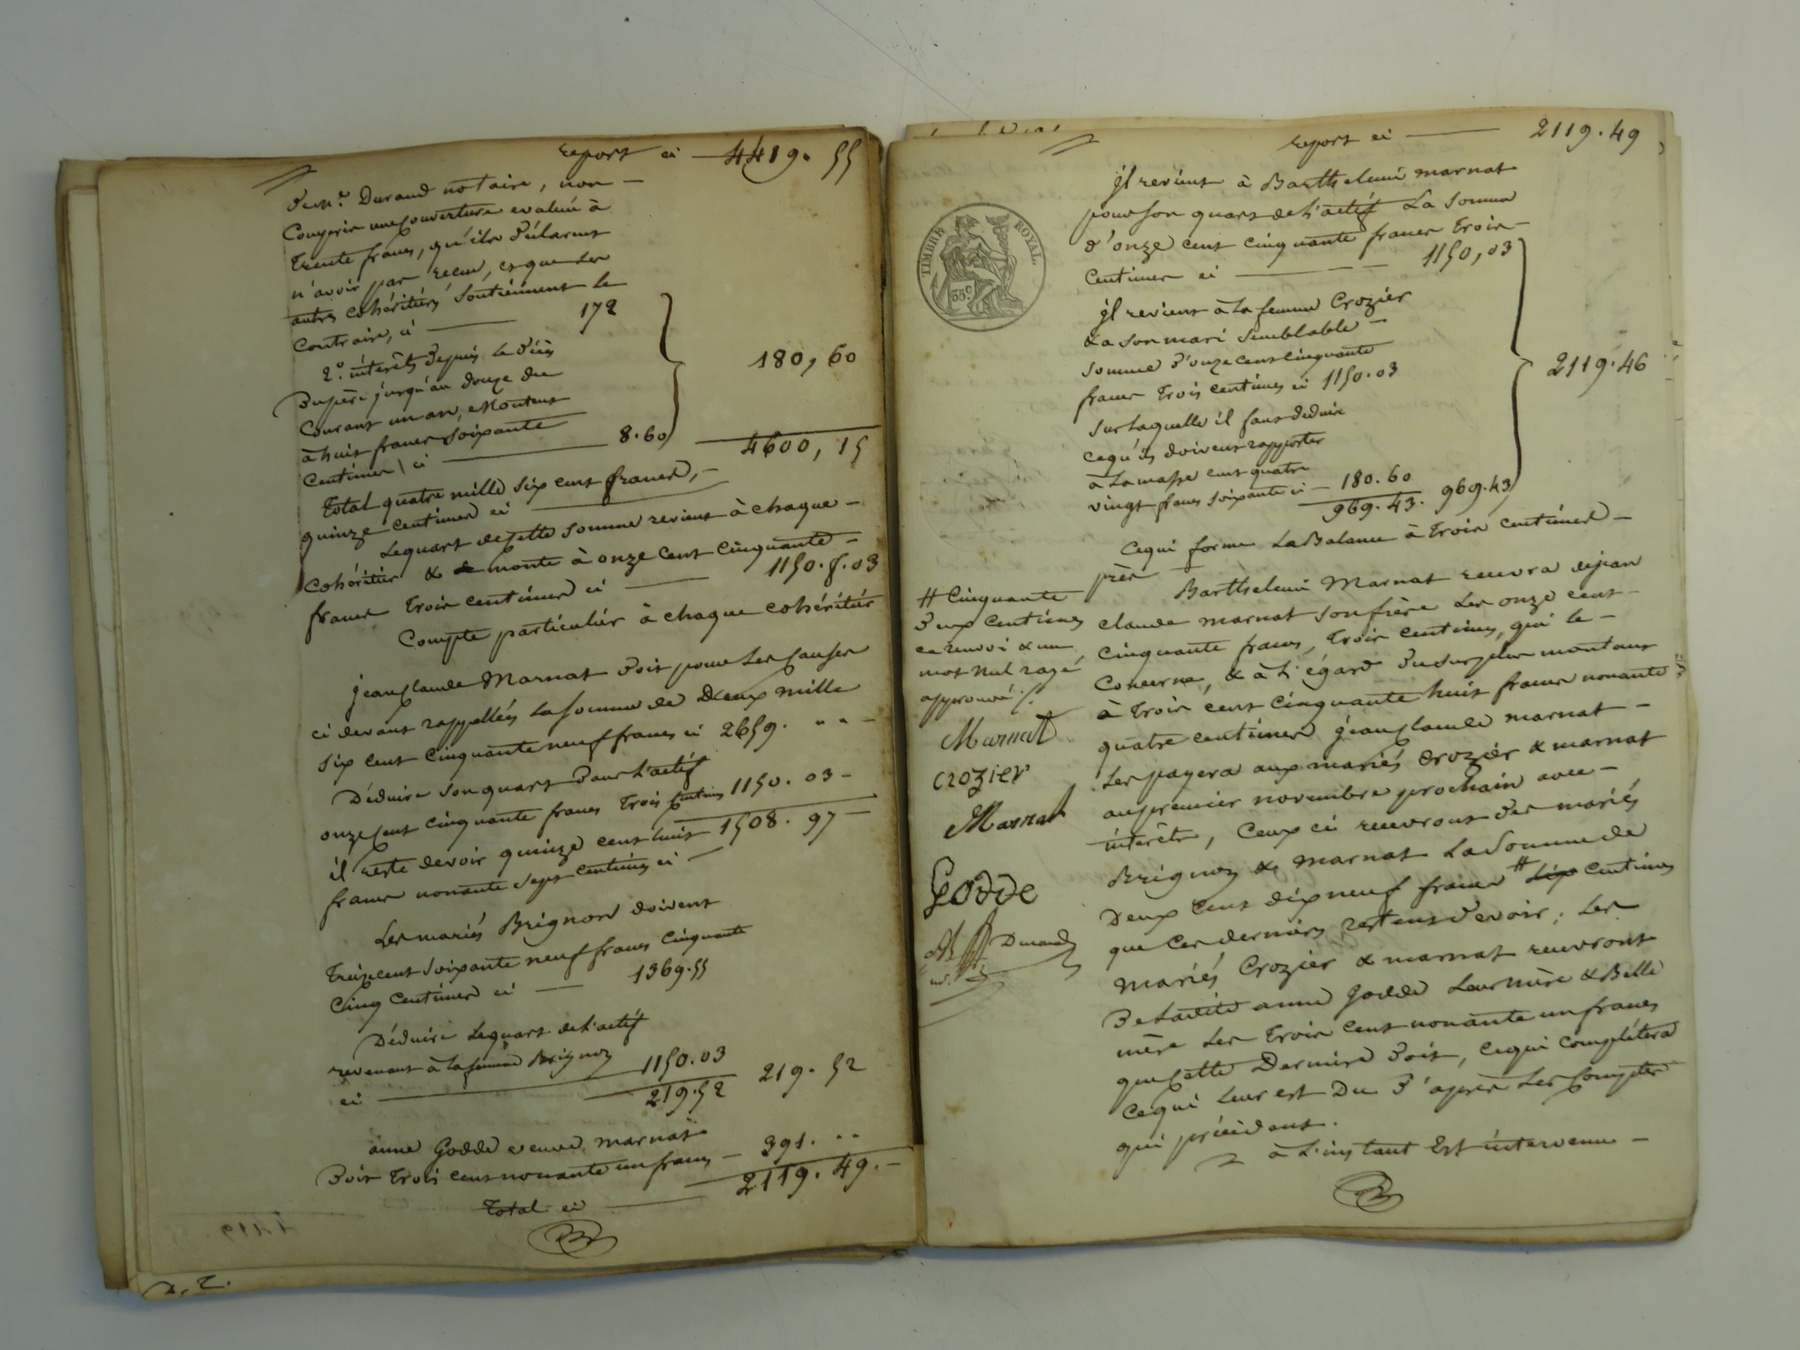 report ci — 4419. 55
de Mre. Durand notaire, non —
Comprise une couverture evaluée à
Trente francs, qu'ils déclarent
n'avoir pas recue, et que les
autres cohéritiers soutiennent le
Contraire, ci — 172
2.° intérêts depuis le décès
Du père jusqu'au douze du
Courant un an, montent
à huit francs soixante
Centimes, ci — 8.60
180, 60
4600, 15
Total quatre mille six cent francs, —
quinze centimes ci —
Le quart de cette somme revient à chaque —
Cohéritier & monte à onze cent cinquante —
francs Trois centimes ci — 1150.f.03
Compte particulier à chaque cohéritier
jean Claude Marnat doit pour les causes
ci devant rappellées la somme de Deux mille
six cent cinquante neuf francs ci 2659. " " —
Déduire son quart dans l'actif
onze Cent cinquante francs Trois Centimes 1150. 03 —
il reste devoir quinze cent huit 1508. 97 —
francs nonante sept centimes ci —
Les mariés Brignon doivent
Treize cent soixante neuf francs cinquante
Cinq Centimes ci — 1369.55
Déduire le quart de l'actif
revenant à la femme Brignon
ci — 1150.03
219.52 219. 52
anne Godde veuve marnat
Doit Trois cent nonante un francs — 391. " "
Total ci — 2119. 49. —
report ci — 2119. 49
TIMBRE ROYAL.
35c
il revient à Barthelemi marnat
pour son quart de l'actif La somme
d'onze cent cinquante francs Trois —
Centimes ci — 1150,03
il revient à la femme Crozier
& à son mari semblable —
somme d'onze cent cinquante
francs Trois centimes ci 1150.03
sur laquelle il faut déduire
ce qu'ils doivent rapporter
à la masse cent quatre
vingt francs soixante ci — 180.60
969.43. 969.43
2119.46
Ce qui forme La Balance à Trois centimes —
près
Barthelemi Marnat recevra de jean
claude marnat son frère les onze cent —
cinquante francs, Trois centimes, qui le —
Concerne, & à l'égard du surplus montant
à Trois cent cinquante huit francs nonante
quatre centimes jean Claude marnat —
les payera aux mariés Crozier & marnat
au premier novembre prochain avec —
intérêts, Ceux ci recevront des mariés
Brignon & marnat La Somme de
Deux Cent dix neuf francs # six centimes
que Ces derniers restent devoir; Les
mariés Crozier & marnat recevront
De ladite anne Godde leur mère & Belle
mère les Trois cent nonante un francs
que Cette Dernière doit, ce qui complétera
ce qui leur est Du d'après les Comptes
qui précèdent.
à L'instant Est intervenu —
# Cinquante
deux centimes
ce renvoi & un
mot nul rayé
approuvé ./.
Marnat
crozier
Marnat
Godde
Durand